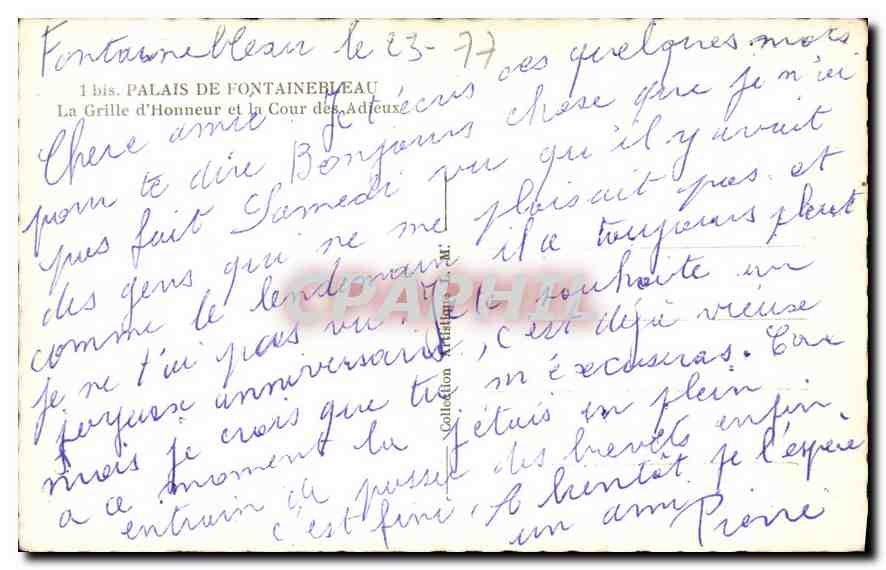 Fontainebleau le 23- 77
1 bis. PALAIS DE FONTAINEBLEAU
La Grille d'Honneur et la Cour des Adieux
Chere amie. Je t'écris ces quelques mots
pour te dire Bonjours chose que je n'ai
pas fait Samedi vu qu'il y avait
des gens qui ne me plaisait pas et
comme le lendemain il a toujours pleut
je ne t'ai pas vu. Je te souhaite un
joyeux anniversaire, c'est déjà vieuse
mais je crois que tu m'excuseras. Car
a ce moment la j'étais en plein
entrain de passer des brevets enfin
c'est fini, A bientôt je l'espère
un ami Pierre
Collection Artistique L. M.
CPAPHIL